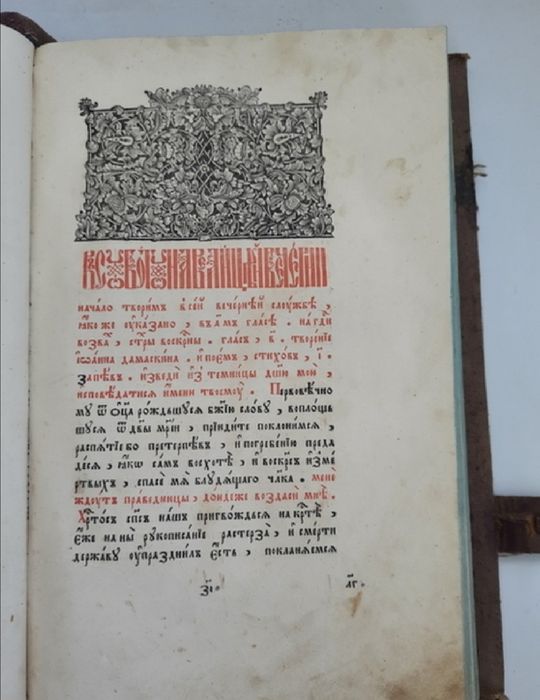 начало творимъ всей вечерней слоужбѣ,
ꙗкоже оуказано, въ а҃мъ гласѣ. на гд҇и
воззва̀, стры воскрⷭ҇ны. гласъ, в҃. творе́нїе
їѡа́нна дамаскина. и҆ поемъ, стихѡвъ, і҃.
Запѣвъ. и҆зведи и҆з̾ темницы дш҃ꙋ мою̀,
исповѣдатисѧ и҆мени твоемꙋ̀. Первовѣчно
мꙋ ѿ ѻ҆ц҃а рождьшꙋсѧ бж҃їю словꙋ, воплощь
шꙋсѧ ѿ дв҃ы мр҃їи, прїидите поклонимсѧ,
распѧтїе бо претерпѣвъ, и҆ погребенїю преда
десѧ, ꙗ҆кѡ самъ восхотѣ, и҆ воскрⷭ҇ъ и҆зме
ртвыхъ, спасе мѧ̀ блꙋдѧщаго чл҃ка. мене
ждꙋтъ праведницы, до́ндеже воздаси мнѣ̀.
Хрⷭ҇тосъ сп҃съ нашъ пригвождьсѧ на крⷭ҇тѣ,
є҆же на ны̀ рꙋкописанїе растерза̀, и҆ смерти
державꙋ оу҆праздни́лъ є҆сть, покланѧемсѧ
з҃і. л҃г.